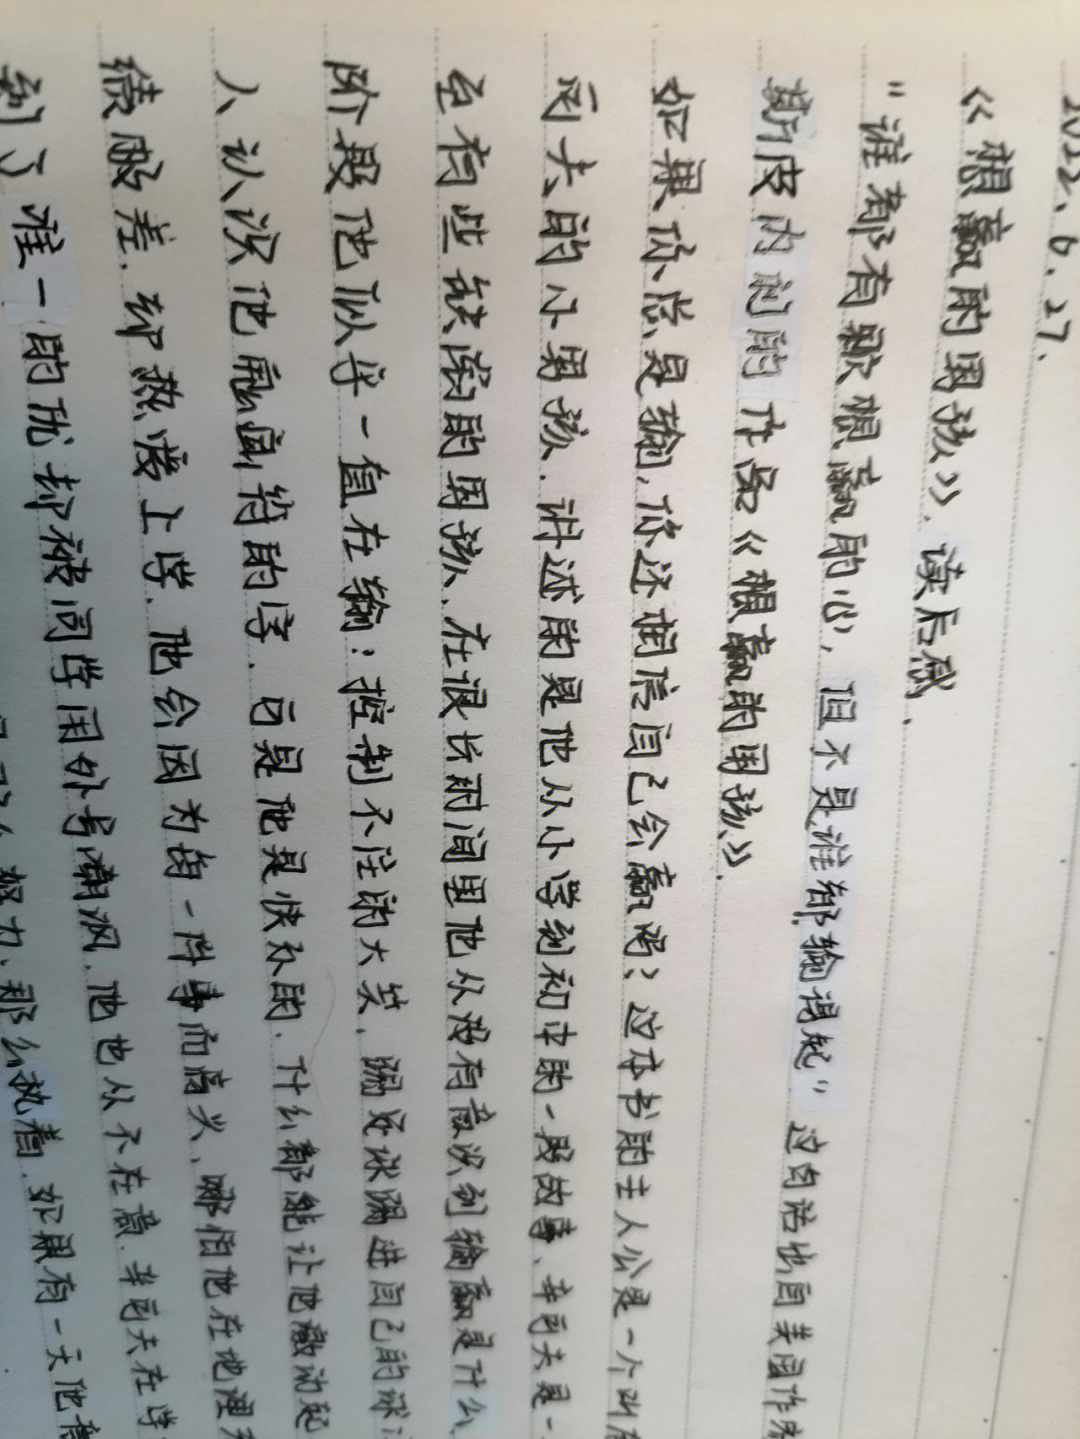 2022.6.27.
《想赢的男孩》.读后感.
"谁都有颗想赢的心,但不是谁都输得起"这句话出自美国作
斯皮内利的作品《想赢的男孩》.
如果你总是输,你还相信自己会赢吗?这本书的主人公是一个叫
克夫的小男孩.讲述的是他从小学到初中的一段故事、辛克夫是一
至有些缺陷的男孩、在很长时间里他从没有意识到输赢是什么
阶段他似乎一值在输:控制不住的大笑.踢足球踢进自己的球
人认识他龙凤符的字.可是他是快乐的.什么都能让他激动起
绩很差.却热爱上学.他会因为每一件事而高兴、哪怕他在地理
到了.唯一的优却被同学用外号嘲讽.他也从不在意.辛克夫在学
努力、那么执着.如果有一天他